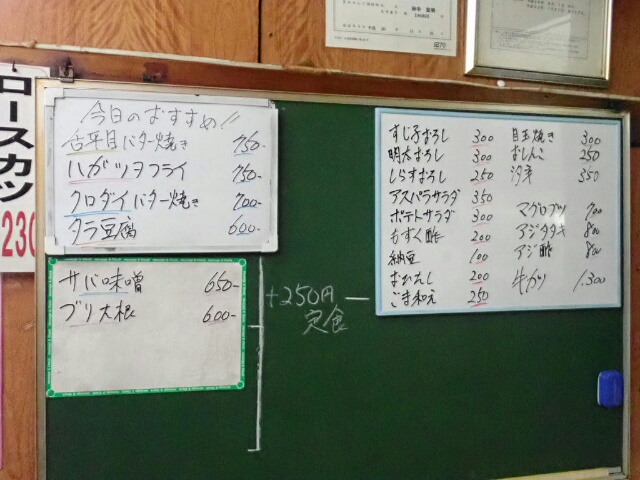 ロースカツ
230
今日のおすすめ!!
舌平目バター焼き 750-
ハガツヲフライ 750-
クロダイバター焼き 700-
タラ豆腐 600-
サバ味噌 650-
ブリ大根 600-
+250円
定食
すじ子おろし 300
明太おろし 300
しらすおろし 250
アスパラサラダ 350
ポテトサラダ 300
もずく酢 200
納豆 100
おひたし 200
ごま和え 250
目玉焼き 300
おしんこ 250
冷奴 350
マグロブツ 700
アジタタキ 800
アジ酢 800
牛カツ 1.300